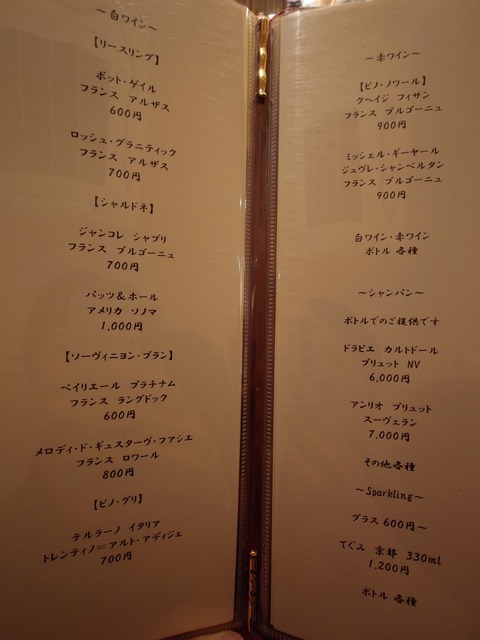 ～白ワイン～
【リースリング】
ボット・ゲイル
フランス アルザス
600円
ロッシュ・グラニティック
フランス アルザス
700円
【シャルドネ】
ジャンコレ シャブリ
フランス ブルゴーニュ
700円
パッツ＆ホール
アメリカ ソノマ
1,000円
【ソーヴィニヨン・ブラン】
ベイリエール プラチナム
フランス ラングドック
600円
メロディ・ド・ギュスターヴ・ファシエ
フランス ロワール
800円
【ピノ・グリ】
テルラーノ イタリア
トレンティノ＝アルト・アディジェ
700円
～赤ワイン～
【ピノ・ノワール】
クヘイジ フィサン
フランス ブルゴーニュ
900円
ミッシェル・ギーヤール
ジュヴレ・シャンベルタン
フランス ブルゴーニュ
900円
白ワイン・赤ワイン
ボトル 各種
～シャンパン～
ボトルでのご提供です
ドラピエ カルトドール
ブリュット NV
6,000円
アンリオ ブリュット
スーヴェラン
7,000円
その他各種
～Sparkling～
グラス 600円～
てぐみ 京都 330ml
1,200円
ボトル 各種